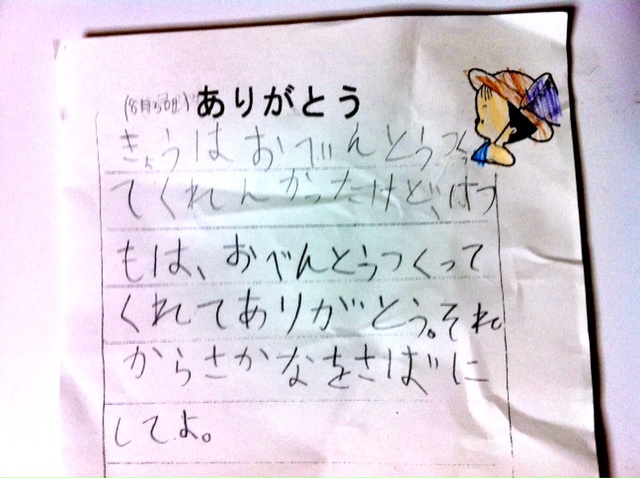 (8月30日) ありがとう
きょうはおべんとうつくっ
てくれんかったけど、いつ
もは、おべんとうつくって
くれてありがとう。それ
からさかなをさばに
してよ。